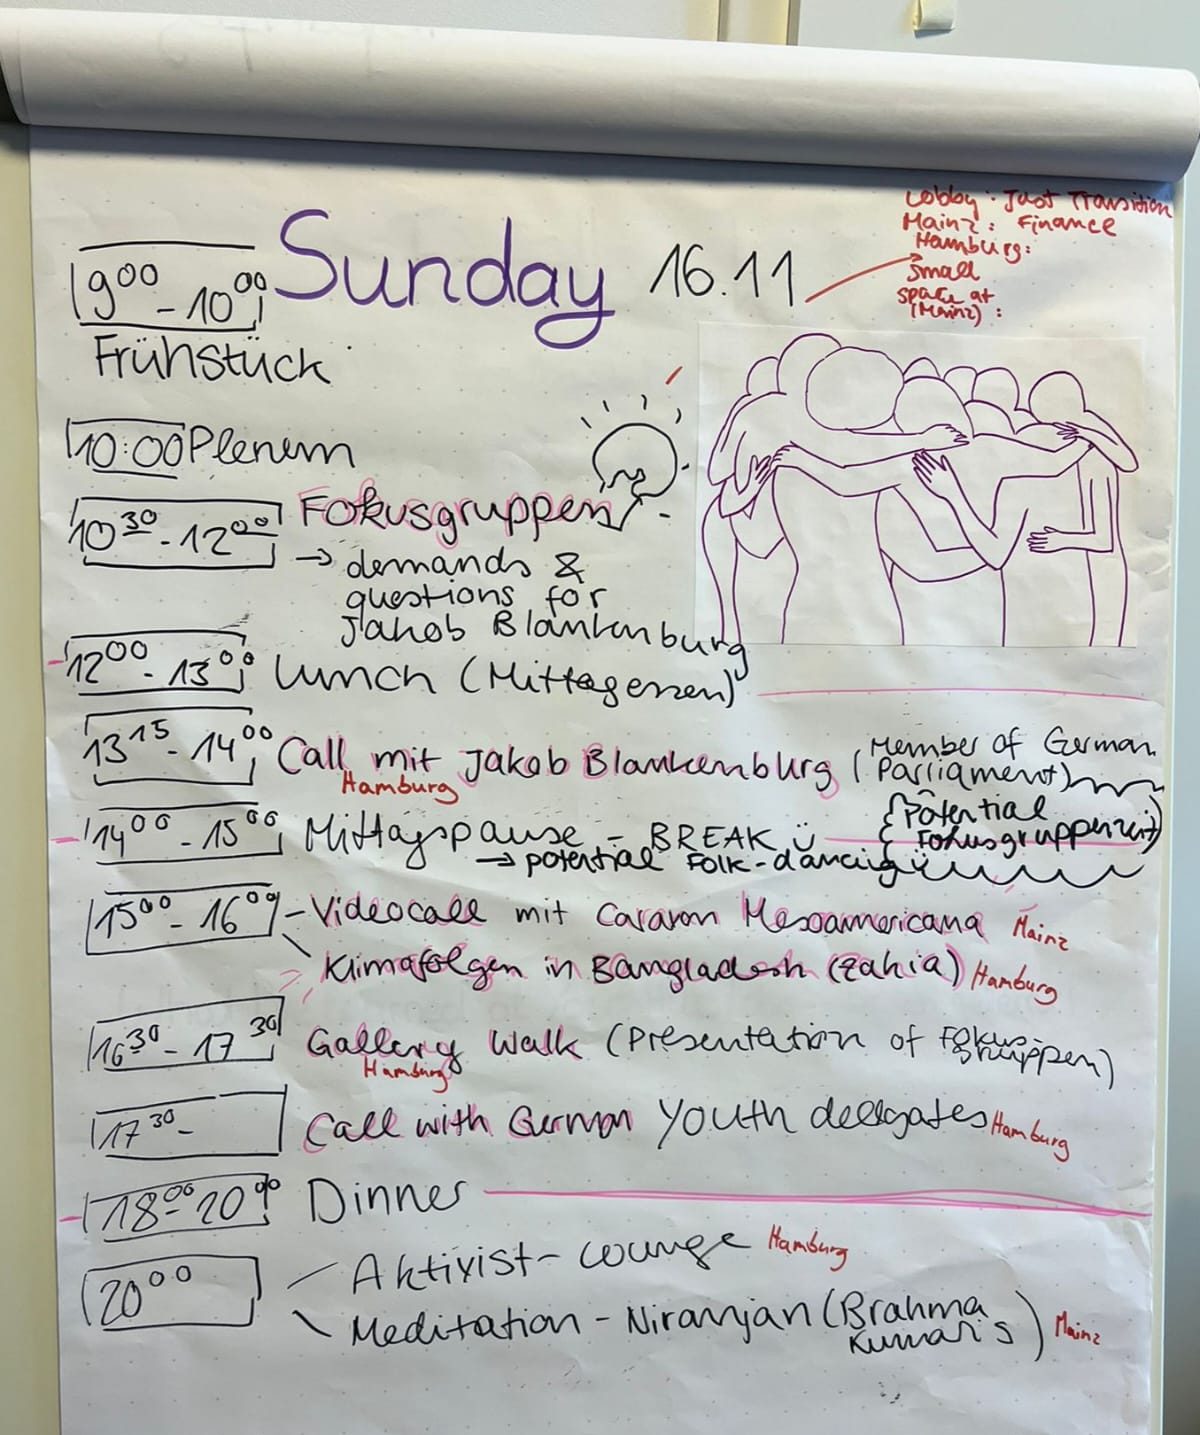 Lobby: Just Transition
Mainz: Finance
Hamburg:
small
space at
(Mainz):
Sunday 16.11
9⁰⁰ - 10⁰⁰
Frühstück
10:00 Plenum
10³⁰ - 12⁰⁰ Fokusgruppen
→ demands &
questions for
Jakob Blankenburg
12⁰⁰ - 13⁰⁰ Lunch (Mittagessen)
13¹⁵ - 14⁰⁰ Call mit Jakob Blankenburg (Member of German
Parliament)
Hamburg
14⁰⁰ - 15⁰⁰ Mittagspause - BREAK ü
{Potential
Fokusgruppenzeit}
→ potential Folk-dancing ü
15⁰⁰ - 16⁰⁰ - Videocall mit Caravan Mesoamericana Mainz
Klimafolgen in Bangladesh (Zakia) Hamburg
16³⁰ - 17³⁰ Gallery Walk (Presentation of Fokus-
gruppen)
Hamburg
17³⁰ - Call with German Youth delegates Hamburg
18⁰⁰ - 20⁰⁰ Dinner
20⁰⁰ Aktivist-Lounge Hamburg
Meditation - Niranjan (Brahma
Kumaris) Mainz